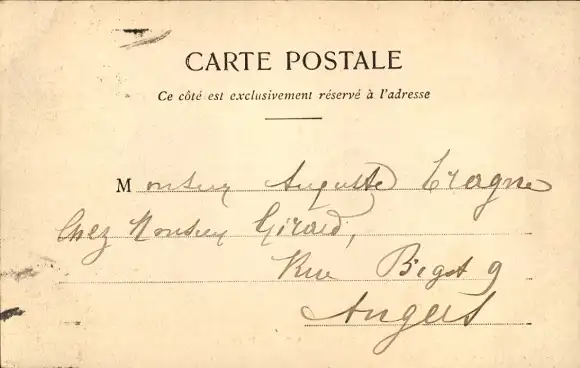 CARTE POSTALE
Ce côté est exclusivement réservé à l'adresse
Monsieur Auguste Tragne
Chez Monsieur Girard,
Rue Bigot 9
Angers